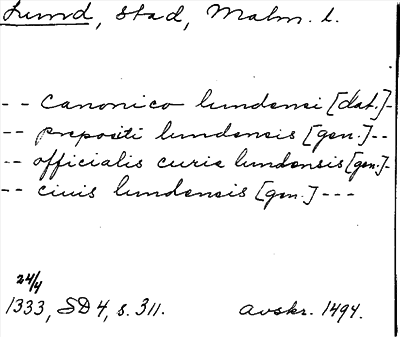 Lund, Stad, Malm. l.
- - Canonico lundensi [dat.] -
- - prepositi lundensis [gen.] - -
- - officialis curie lundensis [gen.] -
- - ciuis lundensis [gen.] - - -
24/4
1333, SD 4, s. 311. avskr. 1494.